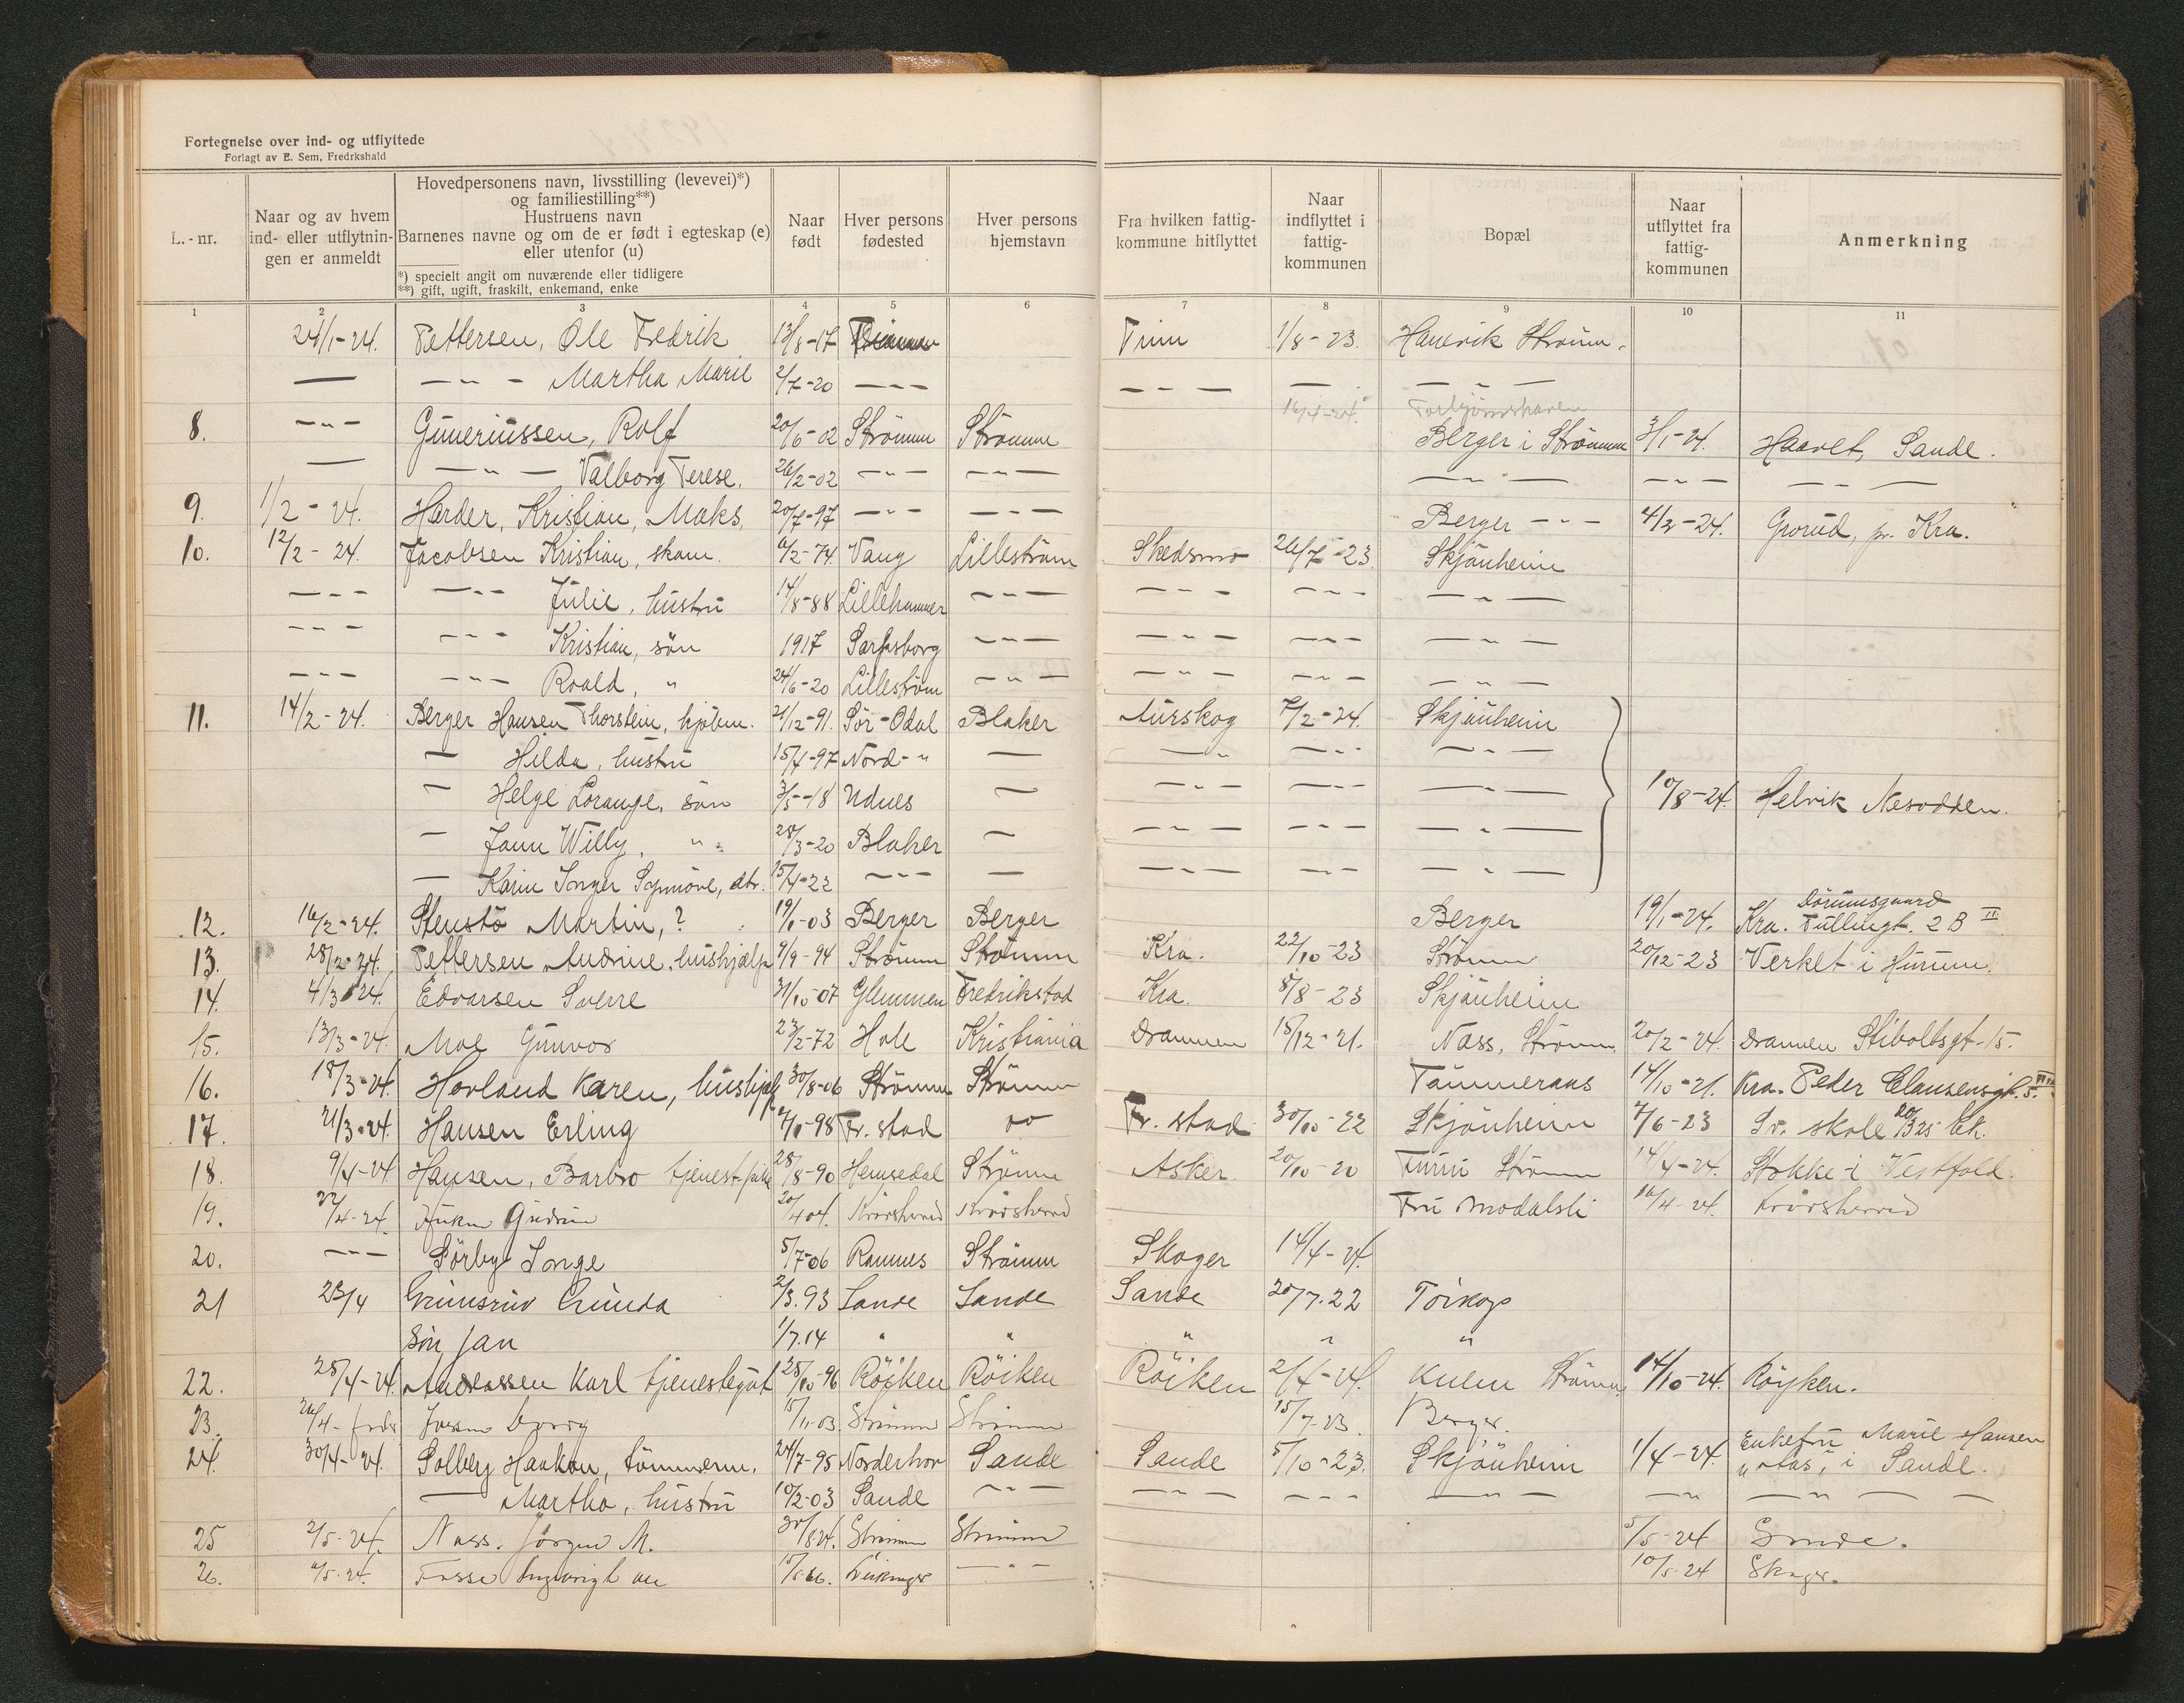 Fortegnelse over ind- og utflyttede
Forlagt av E. Sem, Fredrkshald
L.-nr.
Naar og av hvem ind- eller utflytnin-gen er anmeldt
Hovedpersonens navn, livsstilling (levevei)*)
og familiestilling**)
Hustruens navn
Barnenes navne og om de er født i egteskap (e)
eller utenfor (u)
*) specielt angit om nuværende eller tidligere
**) gift, ugift, fraskilt, enkemand, enke
Naar født
Hver persons fødested
Hver persons hjemstavn
Fra hvilken fattig-kommune hitflyttet
Naar indflyttet i fattig-kommunen
Bopæl
Naar utflyttet fra fattig-kommunen
Anmerkning
1 2 3 4 5 6 7 8 9 10 11
24/1-24. Pettersen, Ole Fredrik 13/8-17 1/8-23.
— — " - Martha Marie 2/7-20 — " — — " — — — " —
16/4-24.
8. — " — Guneriussen, Rolf 20/6-02 Strømm Strømm Berger i Strømm 3/1-24. Haavet, Sande.
— — " — Valborg Terese. 26/2-02 — " — — " — — " — — " — — " —
9. 1/2-24. Harder, Kristian, Maks, 20/7-97 — " — — " — Berger — " — 4/2-24. Grorud, pr. Kra.
10. 12/2-24. Jacobsen Kristian, skom. 6/2-74. Vang Lillestrøm Skedsmo 26/7-23. Skjönheim
— " — — " — Julie, hustru 14/8-88 Lillehammer — " — — " — — " — — " —
— " — — " — Kristian, sön 1917 Sarpsborg — " — — " — — " — — " —
— " — — " — Roald, " 24/6-20 Lillestrøm — " — — " — — " — — " —
11. 14/2-24. Berger Hansen Thorstein, 21/12-91. Sör-Odal Blaker Aurskog 7/2-24. Skjönheim
— Hilda, hustru 15/4-97 Nord- " — — " — " — — " —
— Helge Lorange, sön 3/5-18 Udnes — — " — — " — — " — 10/8-24. Helvik Nesodden.
— Willy, " 28/3-20 Blaker — — " — — " — — " —
— Karin Inger Synnöve, dtr. 15/4-22 — " — — — " — — " — — " —
12. 16/2-24. Stenstö Martin, ? 19/1-03 Berger Berger Berger 19/1-24. Kra. Tullingt. 2 B II
13. 28/2-24. Pettersen Andrine, hushjælp 9/9-94 Strømm Strømm Kra. 22/10-23 Strømm 20/12-23 Verket i Hurum.
14. 4/3-24. Edvarsen Sverre 31/10-07 Glemmen Fredrikstad Kra. 8/8-23 Skjönheim
15. 13/3-24. Moe Gunvor 23/2-72 Hole Kristiania Drammen 15/12-21. Næss, Strømm. 20/2-24. Drammen Stiboltsgt-15.
16. 18/3-24. Hovland Karen, hushjælp 30/8-06 Strømm Strømm 14/10-21. Kra. Peder Clausensgt. 5.
17. 21/3-24. Hansen Erling Fr. stad Fr. stad 30/10-22 Skjönheim 7/6-23 skole
18. 9/4-24 Hansen, Barbro tjenest.pike 28/8-90 Hemsedal Strømm Asker. 20/10-20 Strømm 14/4-24. Stokke i Vestfold.
19. 22/4-24. Gudrun 20/4 04. Krödsherred Krödsherred Fru Modalsli 10/4-24. Krödsherred
20. — " — Sörby Inge 5/7-06 Ramnes Strømm Skoger 14/4-24.
21 23/4 Grimsrud Gunda 2/3.93 Sande Sande Sande 20/7.22 Törkop
Sön Jan 1/7.14 " " " " "
22. 25/4-24. Andreassen Karl tjenestegut 25/10-96 Röyken Röiken Röiken 2/4-24. Strømm. 14/10-24. Röyken.
23. 26/4- 15/11-03. Strømm Strømm 15/7-23. Berger.
24. 30/4-24. Solberg Haakon, tömmerm. 24/7-95 Norderhov Sande Sande 5/10-23. Skjönheim 1/4-24. Enkefru Marie Hansen
"Aas", i Sande.
— Martha, hustru 10/2-03 Sande — " — — " — — " — — " — — " — " —
25 2/5-24. Næss. Jörgen M. Strømm Strømm 5/5-24 Sande.
26. Fosse 10/5-24 Skoger.